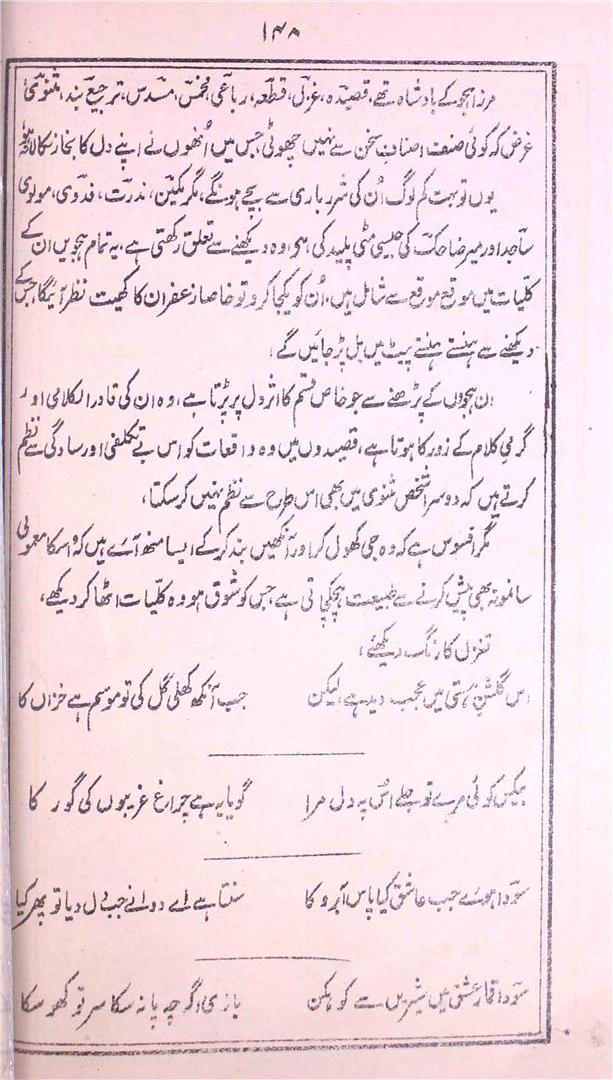 ۱۴۸
مرزا ہجو کے بادشاہ تھے، قصیدہ، غزل، قطعہ، رباعی، مخمس، مسدس، ترجیع بند، مثنوی
غرض کہ کوئی صنف اصناف سخن سے نہیں چھوٹی جس میں اُنھوں نے اپنے دل کا بخار نکالا نہو
یوں تو بہت کم لوگ اُن کی شرر باری سے بچے ہونگے، مگر مکین، ندرت، فدوی، مولوی
ساجد اور میر ضاحک کی جیسی مٹی پلید کی، ہو وہ دیکھنے سے تعلق رکھتی ہے، یہ تمام ہجویں ان کے
کلیات میں موقع موقع سے شامل ہیں، اُن کو یکجا کرو تو خاصا زعفران کا کھیت نظر آئیگا، جس کے
دیکھنے سے ہنستے ہنستے پیٹ میں بل پڑ جائیں گے،
ان ہجووں کے پڑھنے سے جو خاص قسم کا اثر دل پر پڑتا ہے، وہ ان کی قادر الکلامی اور
گرمی کلام کے زور کا ہوتا ہے، قصیدوں میں وہ واقعات کو اس بے تکلفی اور سادگی سے نظم
کرتے ہیں کہ دوسرا شخص مثنوی میں بھی اس طرح سے نظم نہیں کر سکتا،
مگر افسوس ہے کہ وہ جی کھول کر اور آنکھیں بند کر کے ایسا منھ آئے ہیں کہ اسکا معمولی
سا نمونہ بھی پیش کرنے سے طبیعت ہچکچاتی ہے، جس کو شوق ہو وہ کلیات اٹھا کر دیکھے،
تغزل کا رنگ دیکھئے،
اس گلشن ہستی میں عجب دید ہے لیکن جب آنکھ کھلی گل کی تو موسم ہے خزاں کا
بیکس کوئی مرے تو جلے اُس پہ دل مرا گویا یہ ہے چراغ غریبوں کی گور کا
سودا ہوئے جب عاشق کیا پاس آبرو کا سنتا ہے اے دوانے جب دل دیا تو پھر کیا
سودا قمار عشق میں شیریں سے کوہکن بازی اگرچہ پا نہ سکا سر تو کھو سکا